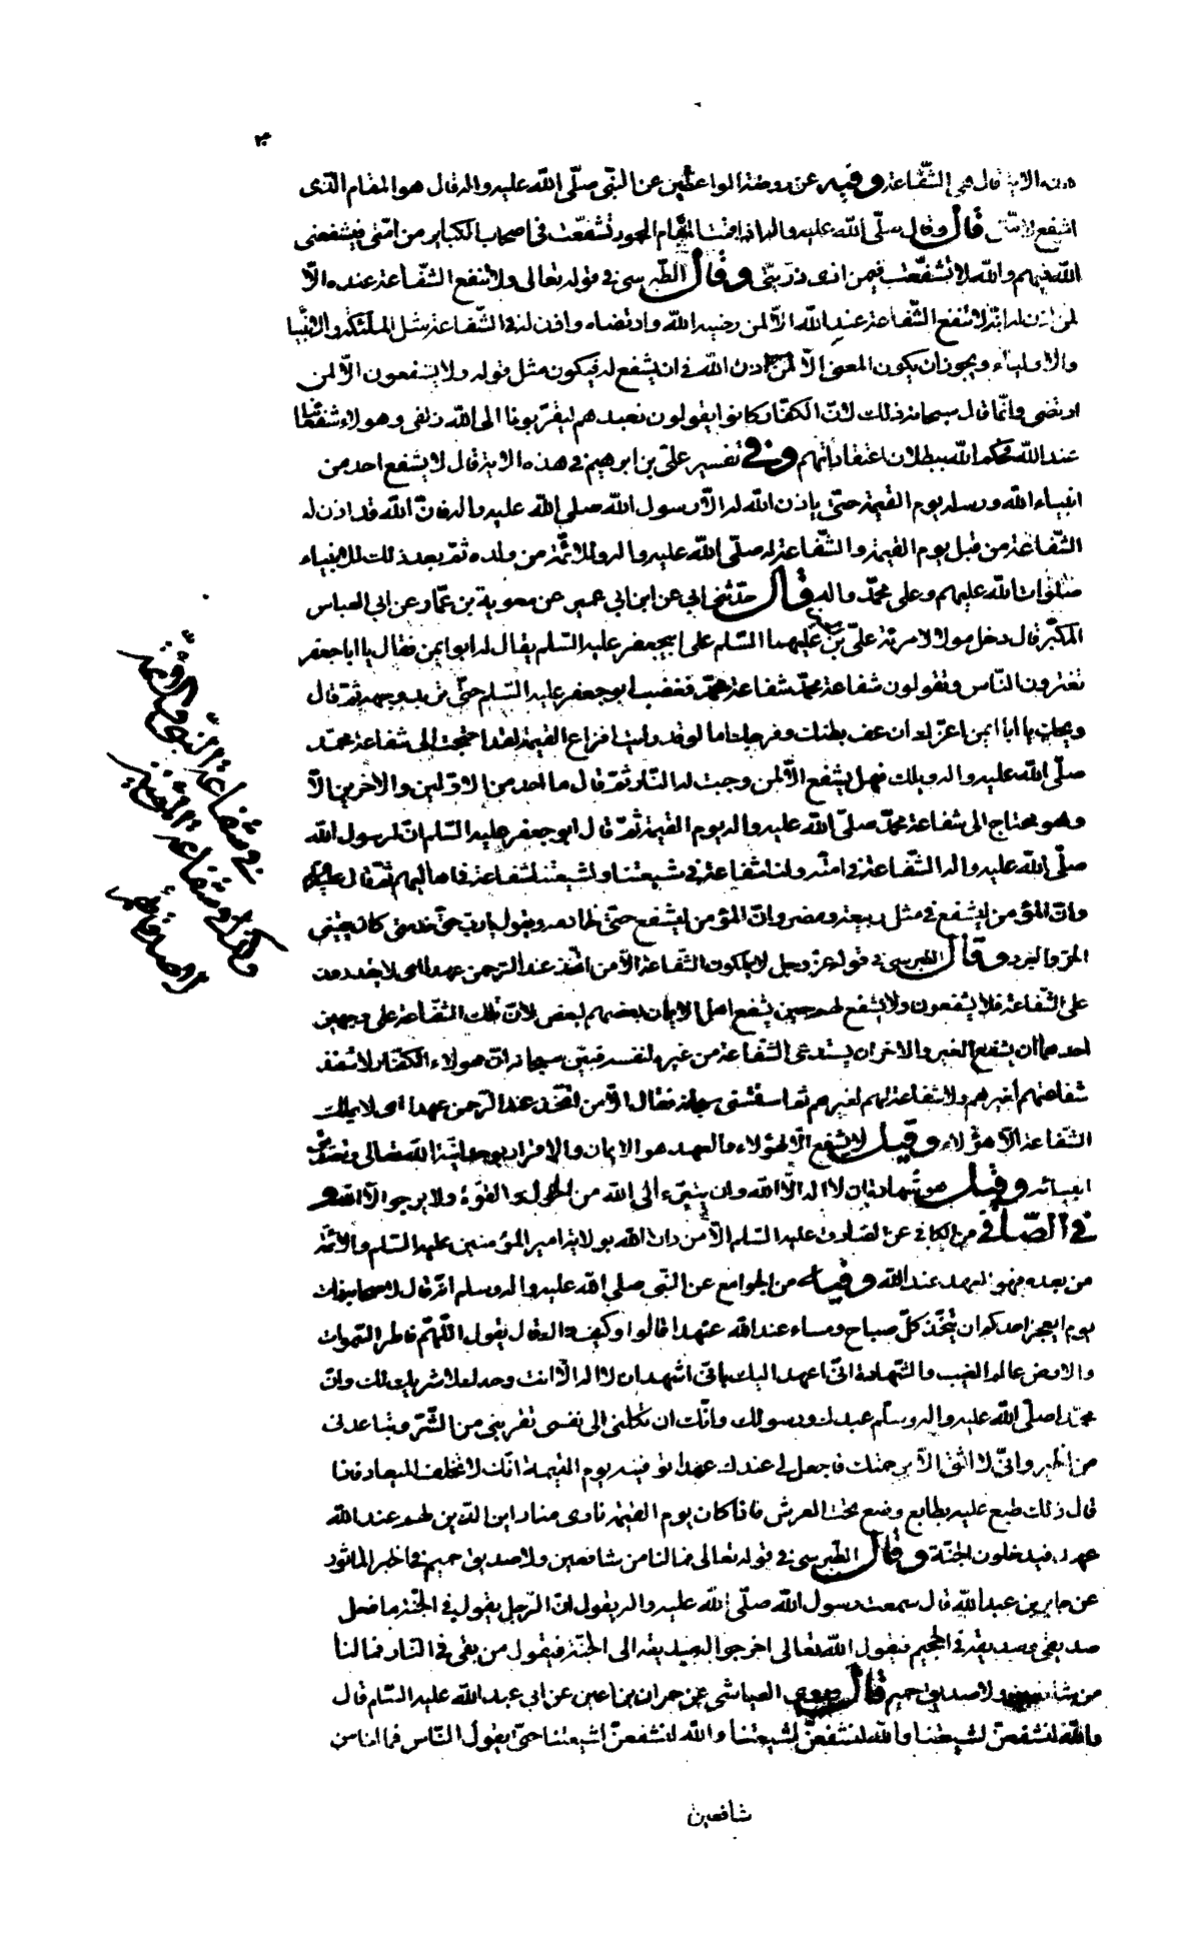 هذه الاية قال هي الشّفاعة وفيه عن روضة الواعظين عن النبّي صلّى اللّه عليه واله قال هو المقام الّذى
اشفع لامّتى قال وقال صلّى اللّه عليه واله اذا قمت المقام المحمود تشفّعت فى اصحاب الكباير من امّتى فيشفعنى
اللّه فيهم واللّه لا تشفّعت فيمن اذى ذرّيتى وقال الطّبرسى فى قوله تعالى ولا تنفع الشّفاعة عنده الّا
لمن اذن له اى لا تنفع الشّفاعة عند اللّه الّا لمن رضيه اللّه وارتضاه واذن له فى الشّفاعة مثل الملئكة والانبيا
والاولياء ويجوز ان يكون المعنى الّا لمن اذن اللّه فى ان يشفع له فيكون مثل قوله ولا يشفعون الّا لمن
ارتضى وانّما قال سبحانه ذلك لانّ الكفّار كانوا يقولون نعبدهم ليقرّبونا الى اللّه زلفى وهولاء شفعائنا
عند اللّه فحكم اللّه ببطلان اعتقاداتهم وفى تفسير علىّ بن ابرهيم فى هذه الاية قال لا يشفع احد من
انبياء اللّه ورسله يوم القيمة حتّى ياذن اللّه له الّا رسول اللّه صلى اللّه عليه واله فانّ اللّه قد اذن له
الشّفاعة من قبل يوم القيمة والشّفاعة له صلّى اللّه عليه واله وللائمّة من ولده ثمّ بعد ذلك للانبياء
صلوات اللّه عليهم وعلى محمّد واله قال حدّثنى ابى عن ابن ابى عمير عن معوية بن عمّار عن ابى العباس
المكبّر قال دخل مولا لامرئة علىّ بن الحسين عليهما السّلم على ابيجعفر عليه السّلم يقال له ابو ايمن فقال يا ابا جعفر
تغترون النّاس وتقولون شفاعة محمّد شفاعة محمّد فغضب ابو جعفر عليه السّلم حتّى تربد وجهه ثمّ قال
ويحك يا ابا ايمن اغرّك ان عف بطنك وفرجك اما لو قد رايت افزاع القيمة لقد احتجت الى شفاعة محمّد
صلّى اللّه عليه واله ويلك فهل يشفع الّا لمن وجبت له النّار ثمّ قال ما احد من الاوّلين والاخرين الّا
وهو محتاج الى شفاعة محمّد صلّى اللّه عليه واله يوم القيمة ثمّ قال ابو جعفر عليه السّلم انّ لرسول اللّه
صلّى اللّه عليه واله الشّفاعة فى امّته ولنا شفاعة فى شيعتنا ولشيعتنا شفاعة فى اهاليهم ثمّ قال
وانّ المؤمن ليشفع فى مثل ربيعة ومضر وانّ المؤمن ليشفع حتّى لخادمه ويقول يا ربّ حقّ خدمتى كان يقينى
الحرّ والبرد وقال الطبرسى فى قوله عزّ وجل لا يملكون الشّفاعة الّا من اتّخذ عند الرّحمن عهدا اى لا يقدرون
على الشّفاعة فلا يشفعون ولا يشفع لهم حين يشفع اهل الايمان بعضهم لبعض لانّ ملك الشّفاعة على وجهين
احدهما ان يشفع للغير والاخر ان يستدعى الشّفاعة من غيره لنفسه فبيّن سبحانه انّ هولاء الكفّار لا تنفذ
شفاعتهم لغيرهم ولا شفاعة لهم لغيرهم ثمّ استثنى سبحانه فقال الّا من اتّخذ عند الرّحمن عهدا اى لا يملك
الشّفاعة الّا هؤلاء وقيل لا يشفع الّا لهؤلاء والعهد هو الايمان والاقرار بوحدانيّة اللّه تعالى وتصديق
انبيائه وقيل هو شهادة ان لا اله الّا اللّه وان يتبرّء الى اللّه من الحول والقوّة ولا يرجو الّا اللّه و
فى الصّافى من الكافى عن الصّادق عليه السّلم الّا من دان اللّه بولاية امير المؤمنين عليه السّلم والائمّة
من بعده فهو العهد عند اللّه وفيه من الجوامع عن النّبى صلى اللّه عليه واله وسلم انّه قال لاصحابه ذات
يوم ايعجز احدكم ان يتّخذ كلّ صباح ومساء عند اللّه عهدا قالوا وكيف ذاك قال يقول اللّهمّ فاطر السّموات
والارض عالم الغيب والشّهادة انّى اعهد اليك بانّى اشهد ان لا اله الّا انت وحدك لا شريك لك وانّ
محمّدا صلّى اللّه عليه واله وسلّم عبدك ورسولك وانّك ان تكلنى الى نفسى تقربنى من الشّرّ وتباعدنى
من الخير وانّى لا اثق الّا برحمتك فاجعل لى عندك عهدا توفينه يوم القيمة انّك لا تخلف الميعاد فاذا
قال ذلك طبع عليه بطابع ووضع تحت العرش فاذا كان يوم القيمة نادى مناد اين الّذين لهم عند اللّه
عهد فيدخلون الجنّة وقال الطّبرسى فى قوله تعالى فما لنا من شافعين ولا صديق حميم فى الخبر الماثور
عن جابر بن عبد اللّه قال سمعت رسول اللّه صلّى اللّه عليه واله يقول انّ الرّجل يقول فى الجنّة ما فعل
صديقى وصديقه فى الجحيم فيقول اللّه تعالى اخرجوا له صديقه الى الجنّة فيقول من بقى فى النّار فما لنا
من شافعين ولا صديق حميم قال وروى العياشى عن حمران بن اعين عن ابى عبد اللّه عليه السّلم قال
واللّه لنشفعنّ لشيعتنا واللّه لنشفعنّ لشيعتنا واللّه لنشفعنّ لشيعتنا حتّى يقول النّاس فما لنا من
شافعين
فى شفاعة النّبى والائمّة
وكذا فى شفاعة المؤمنين